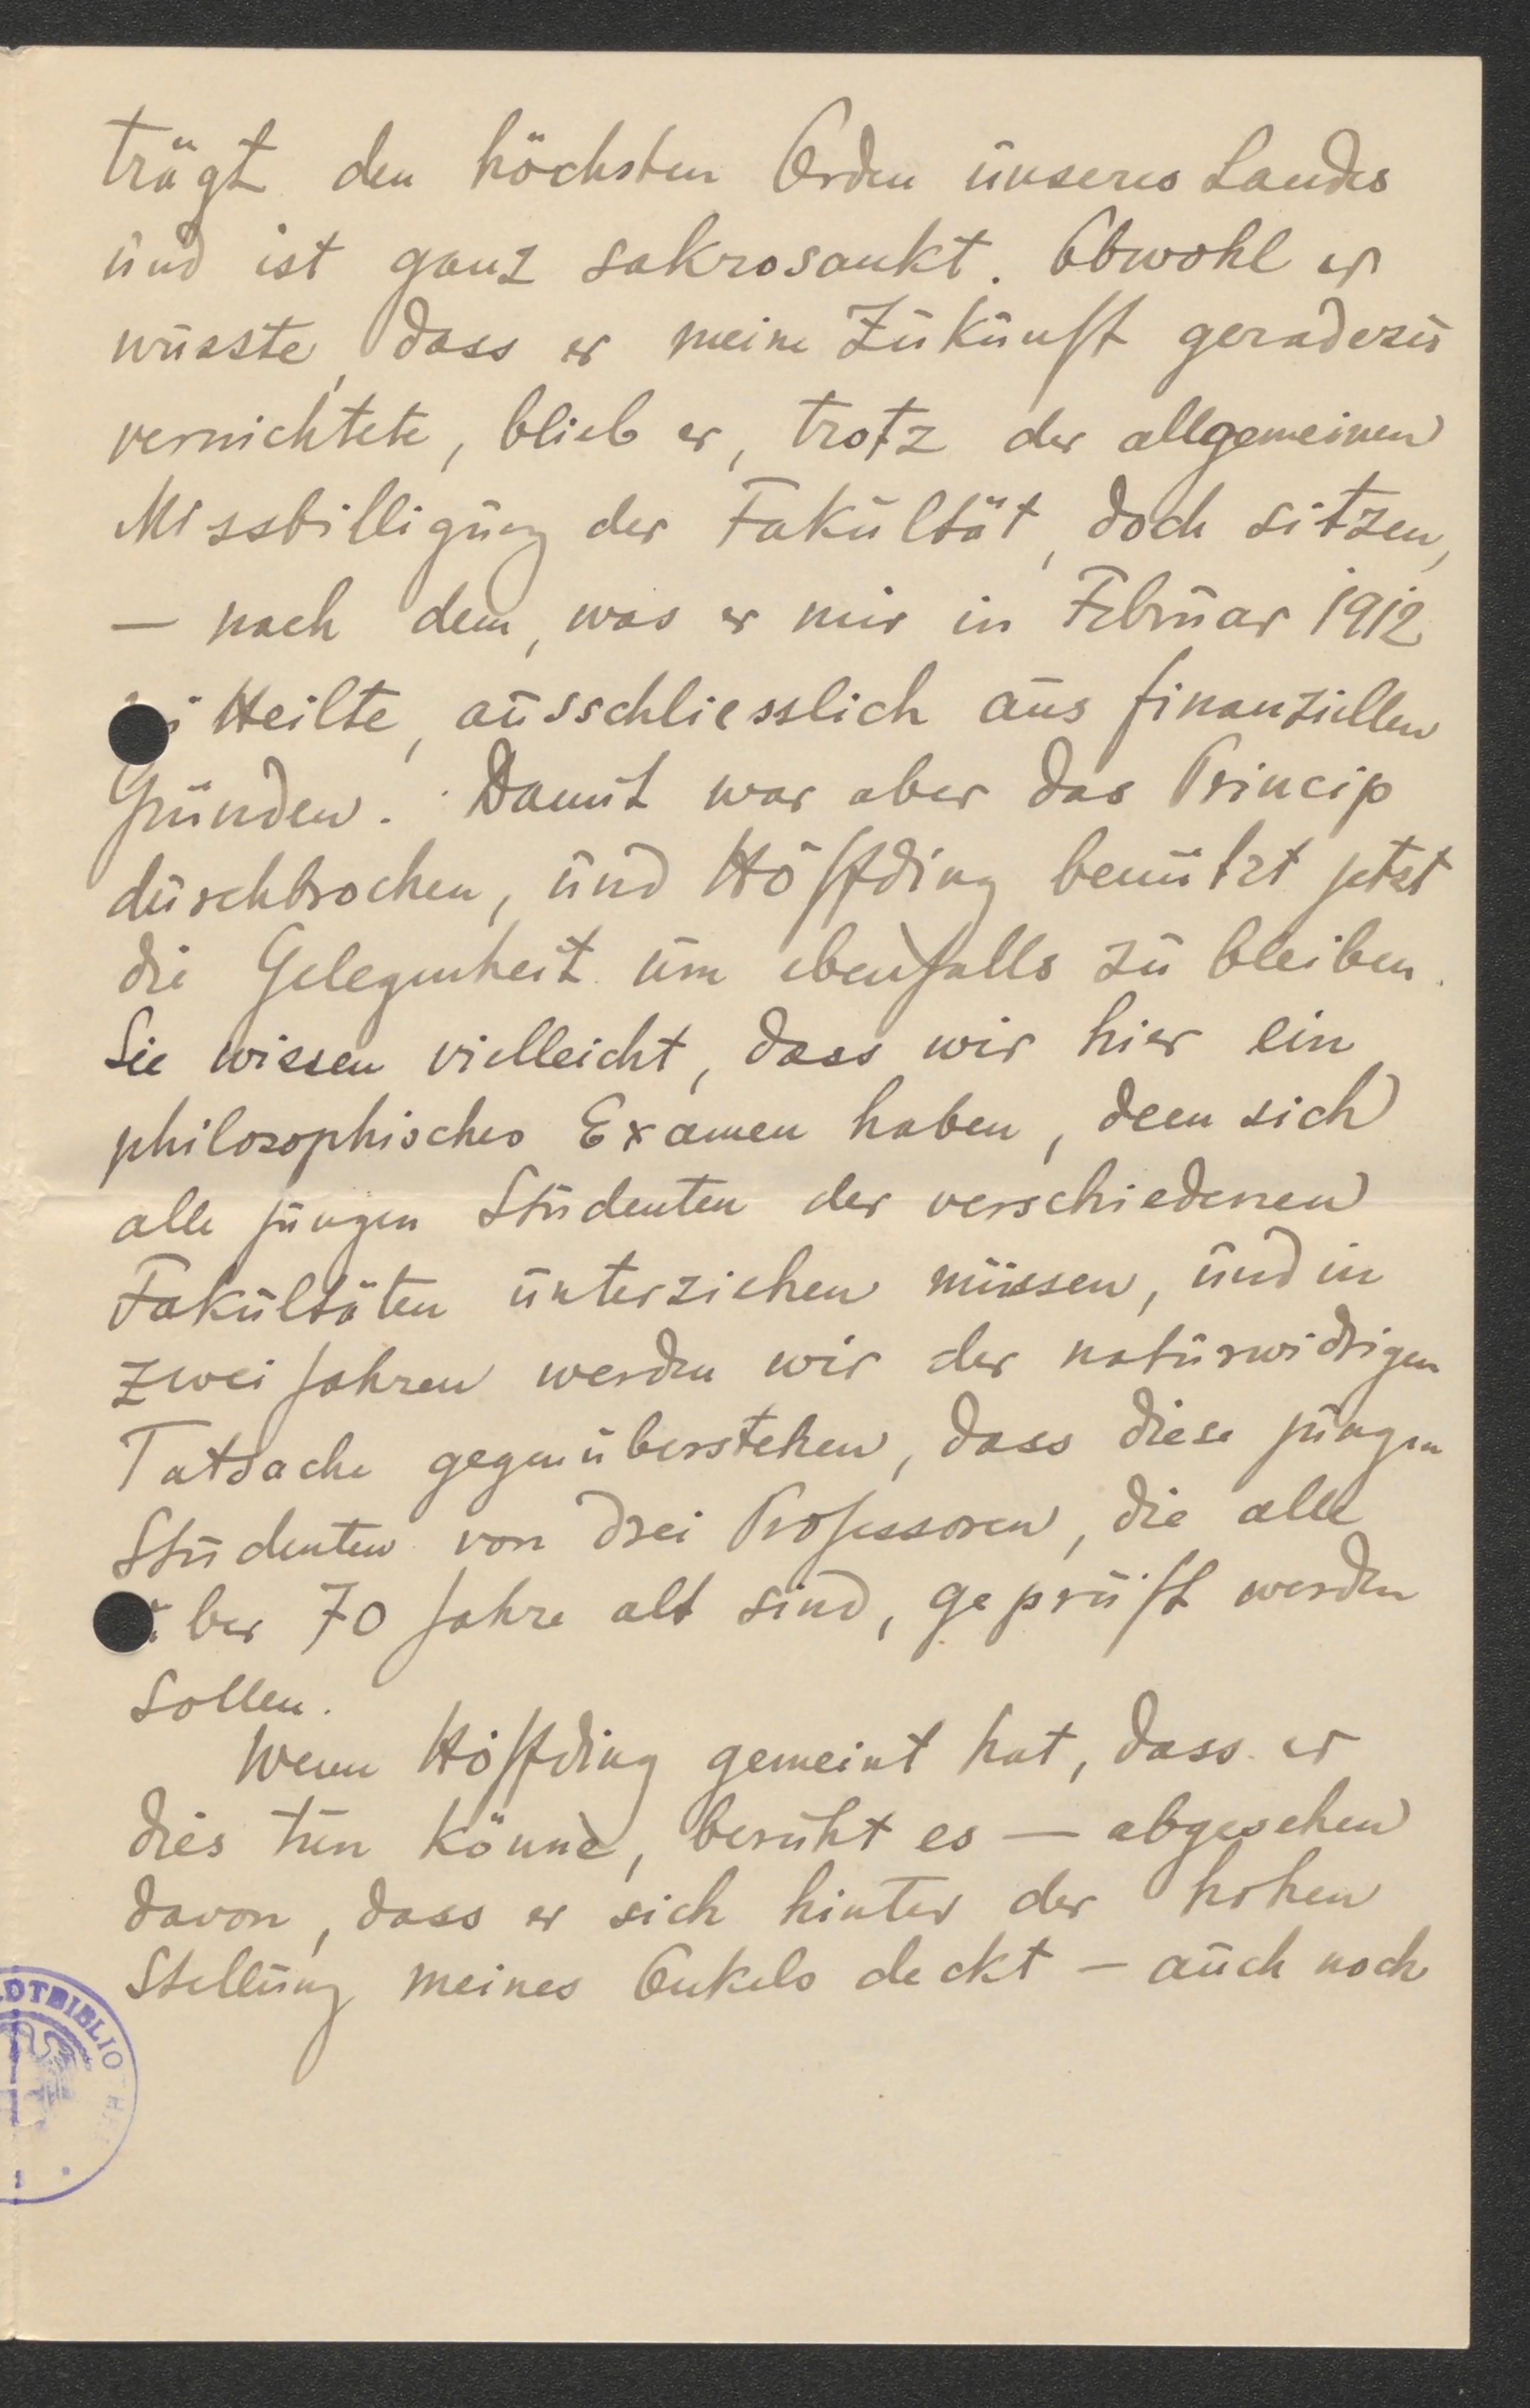 trägt den höchsten Orden unseres Landes
und ist ganz sakrosankt. Obwohl er
wusste, dass er meine Zukunft geradezu
vernichtete, blieb er, trotz der allgemeinen
Missbilligung der Fakultät, doch sitzen,
— nach dem, was er mir in Februar 1912
mitteilte, ausschliesslich aus finanziellen
Gründen. Damit war aber das Princip
durchbrochen, und Höffding benützt jetzt
die Gelegenheit um ebenfalls zu bleiben.
Sie wissen vielleicht, dass wir hier ein
philosophisches Examen haben, dem sich
alle jungen Studenten der verschiedenen
Fakultäten unterziehen müssen, und in
zwei Jahren werden wir der naturwidrigen
Tatsache gegenüberstehen, dass diese jungen
Studenten von drei Professoren, die alle
über 70 Jahre alt sind, geprüft werden
sollen.
Wenn Höffding gemeint hat, dass er
dies tun könne, beruht es — abgesehen
davon, dass er sich hinter der hohen
Stellung meines Onkels deckt — auch noch
DTBIBLIOTHEK